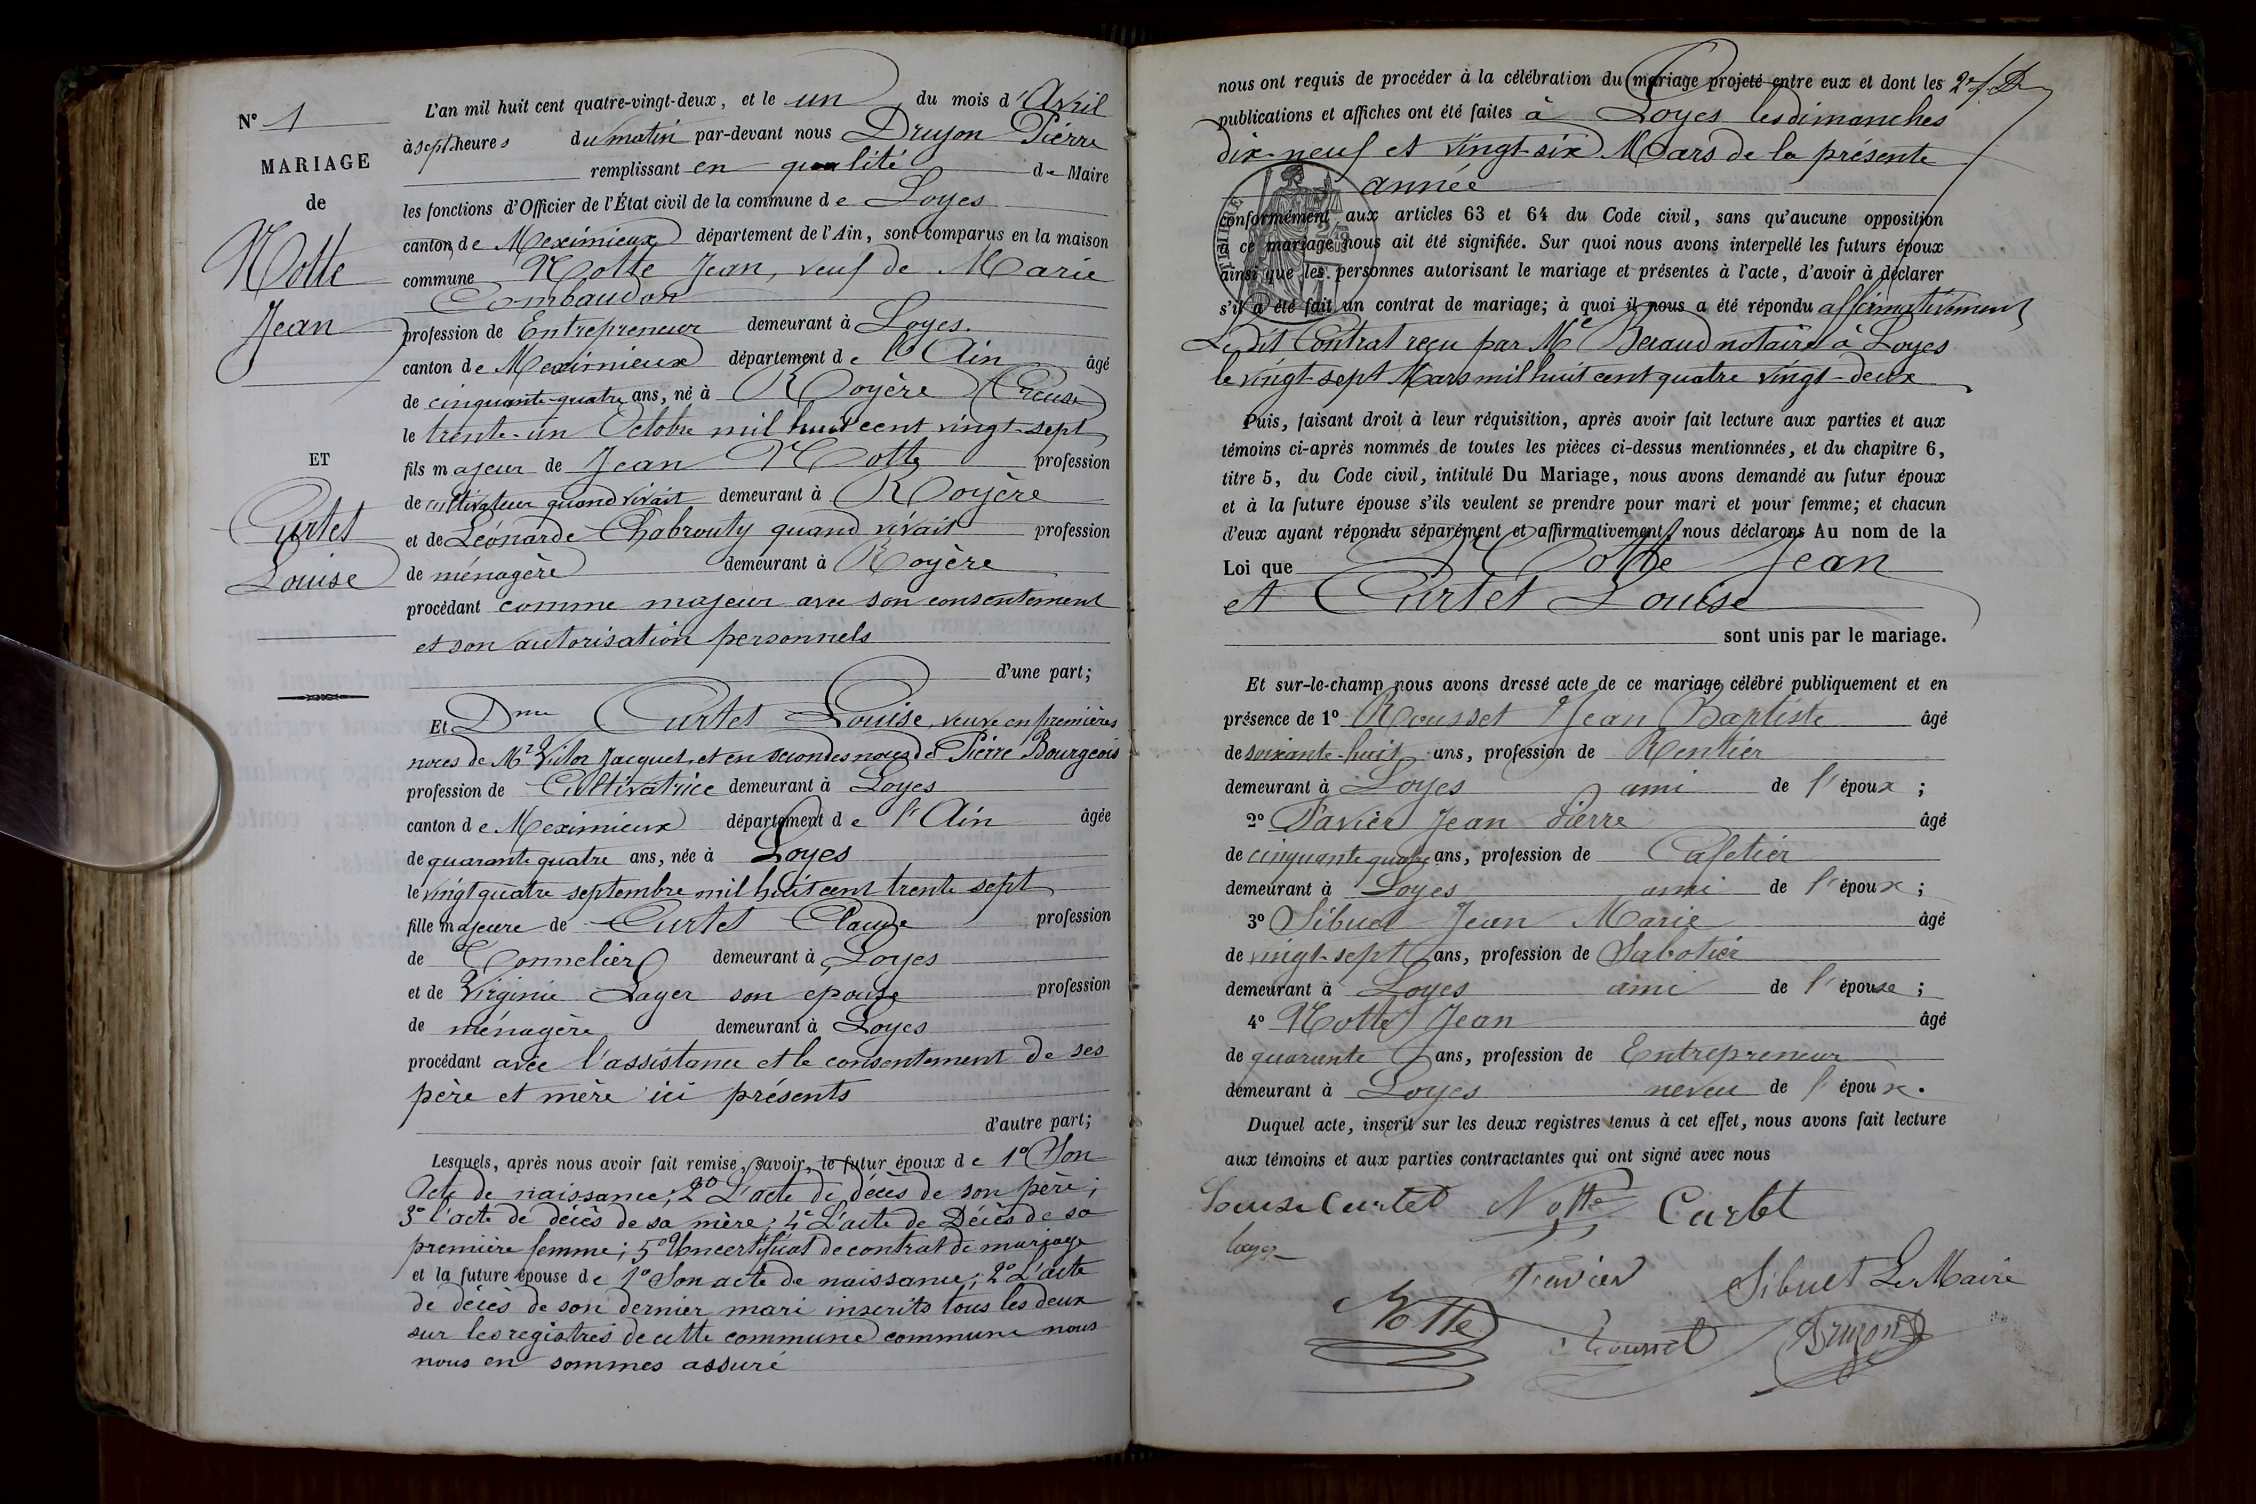 N° 1
MARIAGE
de
Notte
Jean
ET
Curtet
Louise
L'an mil huit cent quatre-vingt-deux, et le un du mois d'Avril
à sept heures du matin par-devant nous Druyon Pierre
remplissant en qualité de Maire
les fonctions d'Officier de l'État civil de la commune de Loyes
canton de Meximieux département de l'Ain, sont comparus en la maison
commune Notte Jean, veuf de Marie
Combaudon
profession de Entrepreneur demeurant à Loyes.
canton de Meximieux département de l'Ain âgé
de cinquante-quatre ans, né à Royère (Creuse
le trente-un Octobre mil huit cent vingt-sept
fils majeur de Jean Notte profession
de cultivateur quand vivait demeurant à Royère
et de Léonarde Chabrouty quand vivait profession
de ménagère demeurant à Royère
procédant comme majeur avec son consentement
et son autorisation personnels
d'une part;
Et Dme Curtet Louise, veuve en premières
noces de Mr Victor Jacquet, et en secondes noces de Pierre Bourgeois
profession de Cultivatrice demeurant à Loyes
canton de Meximieux département de l'Ain âgée
de quarante quatre ans, née à Loyes
le vingt quatre septembre mil huit cent trente sept
fille majeure de Curtet Claude profession
de Tonnelier demeurant à Loyes
et de Virginie Layer son épouse profession
de ménagère demeurant à Loyes
procédant avec l'assistance et le consentement de ses
père et mère ici présents
d'autre part;
Lesquels, après nous avoir fait remise, savoir, le futur époux de 1° Son
Acte de naissance; 2° L'acte de décès de son père;
3° l'acte de décès de sa mère; 4° L'acte de Décès de sa
première femme; 5° Un certificat de contrat de mariage
et la future épouse de 1° Son acte de naissance; 2° L'acte
de décès de son dernier mari inscrits tous les deux
sur les registres de cette commune commune nous
nous en sommes assuré
nous ont requis de procéder à la célébration du mariage projeté entre eux et dont les
publications et affiches ont été faites à Loyes les dimanches
dix-neuf et vingt-six Mars de la présente
année
conformément aux articles 63 et 64 du Code civil, sans qu'aucune opposition
à ce mariage nous ait été signifiée. Sur quoi nous avons interpellé les futurs époux
ainsi que les personnes autorisant le mariage et présentes à l'acte, d'avoir à déclarer
s'il a été fait un contrat de mariage; à quoi il nous a été répondu affirmativement
Le dit Contrat reçu par Me Beraud notaire à Loyes
le vingt-sept Mars mil huit cent quatre vingt-deux
Puis, faisant droit à leur réquisition, après avoir fait lecture aux parties et aux
témoins ci-après nommés de toutes les pièces ci-dessus mentionnées, et du chapitre 6,
titre 5, du Code civil, intitulé Du Mariage, nous avons demandé au futur époux
et à la future épouse s'ils veulent se prendre pour mari et pour femme; et chacun
d'eux ayant répondu séparément et affirmativement, nous déclarons Au nom de la
Loi que Notte Jean
et Curtet Louise
sont unis par le mariage.
Et sur-le-champ nous avons dressé acte de ce mariage célébré publiquement et en
présence de 1° Rousset Jean Baptiste âgé
de soixante-huit ans, profession de Rentier
demeurant à Loyes ami de l'époux ;
2° Favier Jean Pierre âgé
de cinquante quatre ans, profession de Cafetier
demeurant à Loyes ami de l'époux ;
3° Sibuet Jean Marie âgé
de vingt-sept ans, profession de Sabotier
demeurant à Loyes ami de l'épouse ;
4° Notte Jean âgé
de quarante ans, profession de Entrepreneur
demeurant à Loyes neveu de l'époux.
Duquel acte, inscrit sur les deux registres tenus à cet effet, nous avons fait lecture
aux témoins et aux parties contractantes qui ont signé avec nous
Louise Curtet Notte Curtet
Favier Sibuet Le Maire
Notte Rousset Druyon